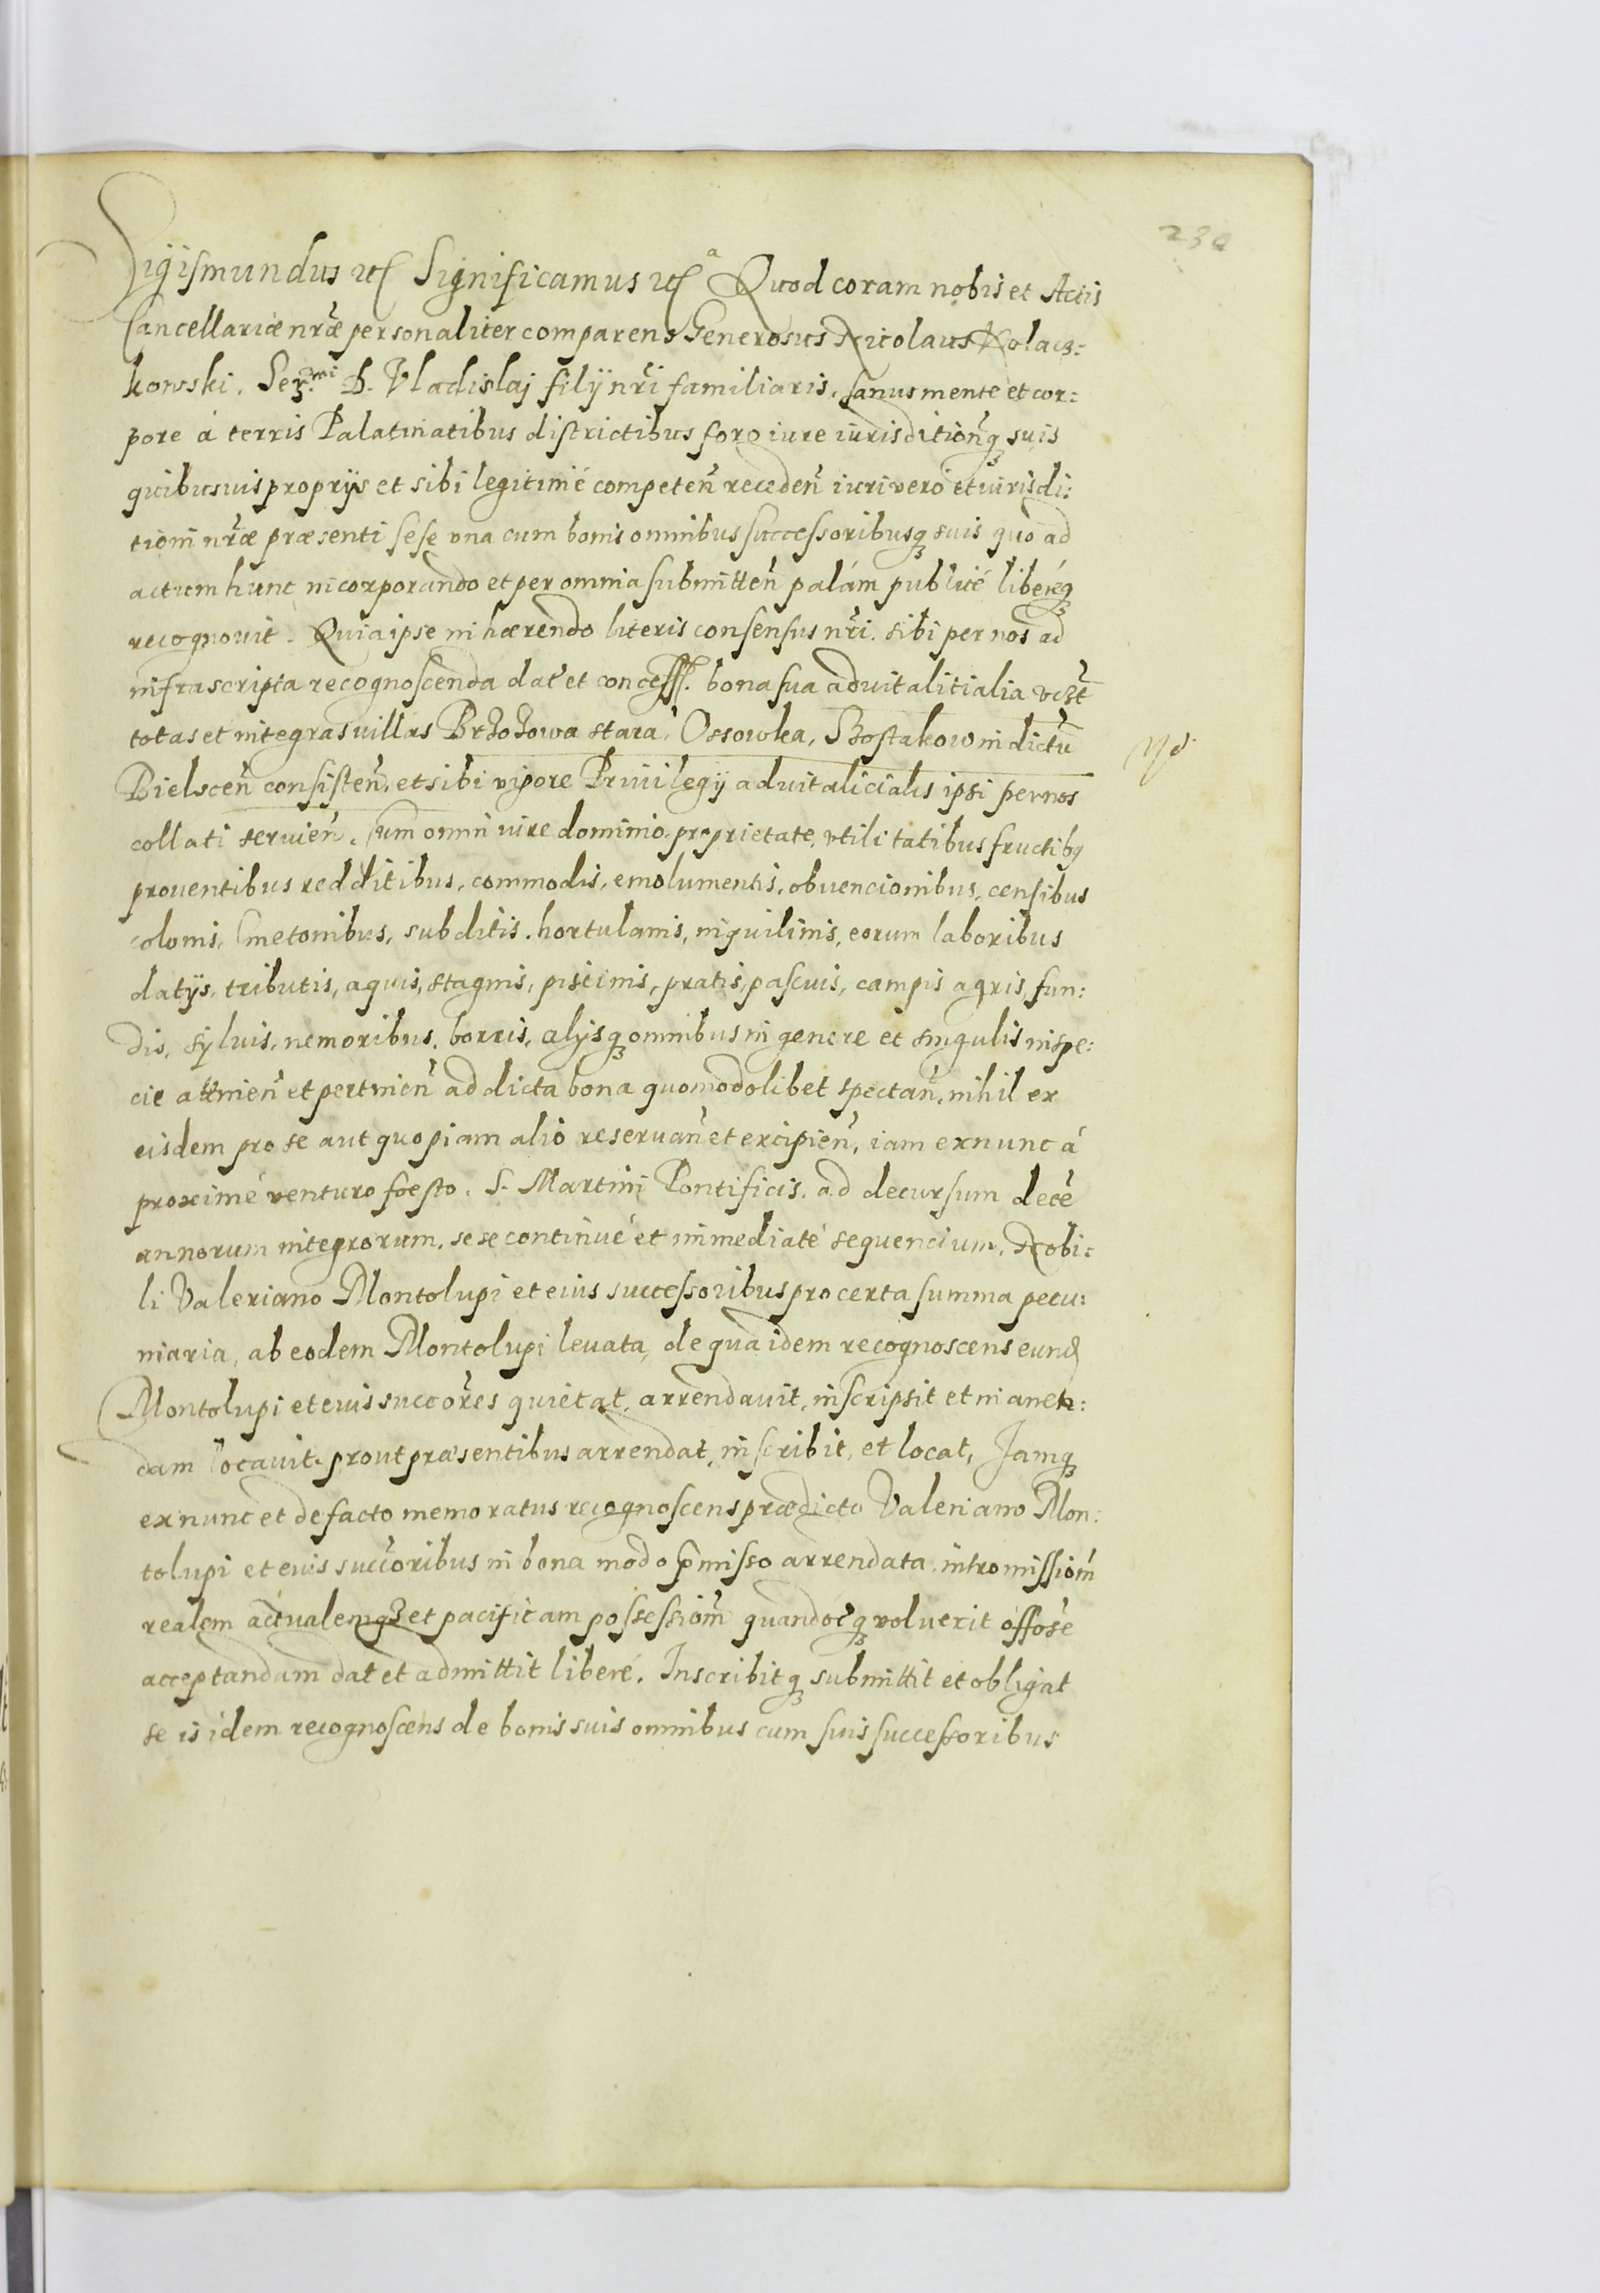 234
Sigismundus etc Significamus etc a Quod coram nobis et Actis
Cancellariæ nræ personaliter comparens Generosus Nicolaus Kolacz:
kowski. Ser.mi D. Vladislaj filij nri familiaris, sanus mente et cor:
pore á terris Palatinatibus districtibus foro iure iurisditionq suis
quibusuis proprijs et sibi legitimé competen receden iuri vero et iurisdi:
tioni nræ præsenti sese una cum bonis omnibus successoribusq suis quo ad
actum hunc incorporando et per omnia submitten palám publicé liberéq
recognouit. Quia ipse inhærendo literis consensus nri. sibi per nos ad
infrascripta recognoscenda dat et concess. bona sua aduitalitialia vczt
totas et integras villas Brzozowa stara, Ossowka, Szostakow in dictu
Bielscen consisten, et sibi vigore Priuilegij aduitalicialis ipsi per nos
collati seruien. Cum omni iure dominio proprietate, vtilitatibus fructibq
prouentibus redditibus, commodis, emolumentis, obuencionibus, censibus
colonis, Cmetonibus, subditis, hortulanis, inquilinis, eorum laboribus
datijs, tributis, aquis, stagnis, piscinis, pratis, pascuis, campis agris, fun:
dis, syluis, nemoribus, borris, alijsq omnibus in genere et singulis in spe:
cie attinen et pertinen ad dicta bona quomodolibet spectan, nihil ex
eisdem pro se aut quopiam alio reseruan et excipien, iam ex nunc á
proximé venturo foesto. S. Martini Pontificis. ad decursum dece
annorum integrorum, sese continué et immediaté sequencium. Nobi:
li Valeriano Montolupi et eius successoribus pro certa summa pecu:
niaria, ab eodem Montolupi leuata, de qua idem recognoscens eund
Montolupi et eius succores quietat, arrendauit, inscripsit et in aren:
dam locauit. prout præsentibus arrendat, inscribit, et locat, Jamq
ex nunc et de facto memoratus recognoscens prædicto Valeriano Mon:
tolupi et eius succoribus in bona modo pmisso arrendata. intromissiom
realem actualemq3 et pacificam possessiom quandocq voluerit offose
acceptandam dat et admittit liberé. Inscribitq submittit et obligat
se is idem recognoscens de bonis suis omnibus cum suis successoribus